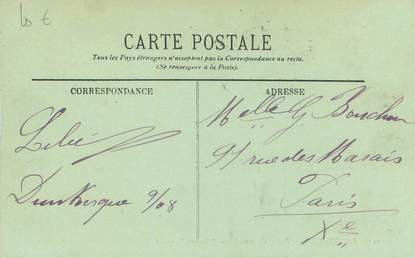 10 €
CARTE POSTALE
Tous les Pays étrangers n'acceptent pas la Correspondance au recto.
(Se renseigner à la Poste).
CORRESPONDANCE
ADRESSE
Melle G.
91 rue des Marais
Paris
Xe
Dunkerque 9/08